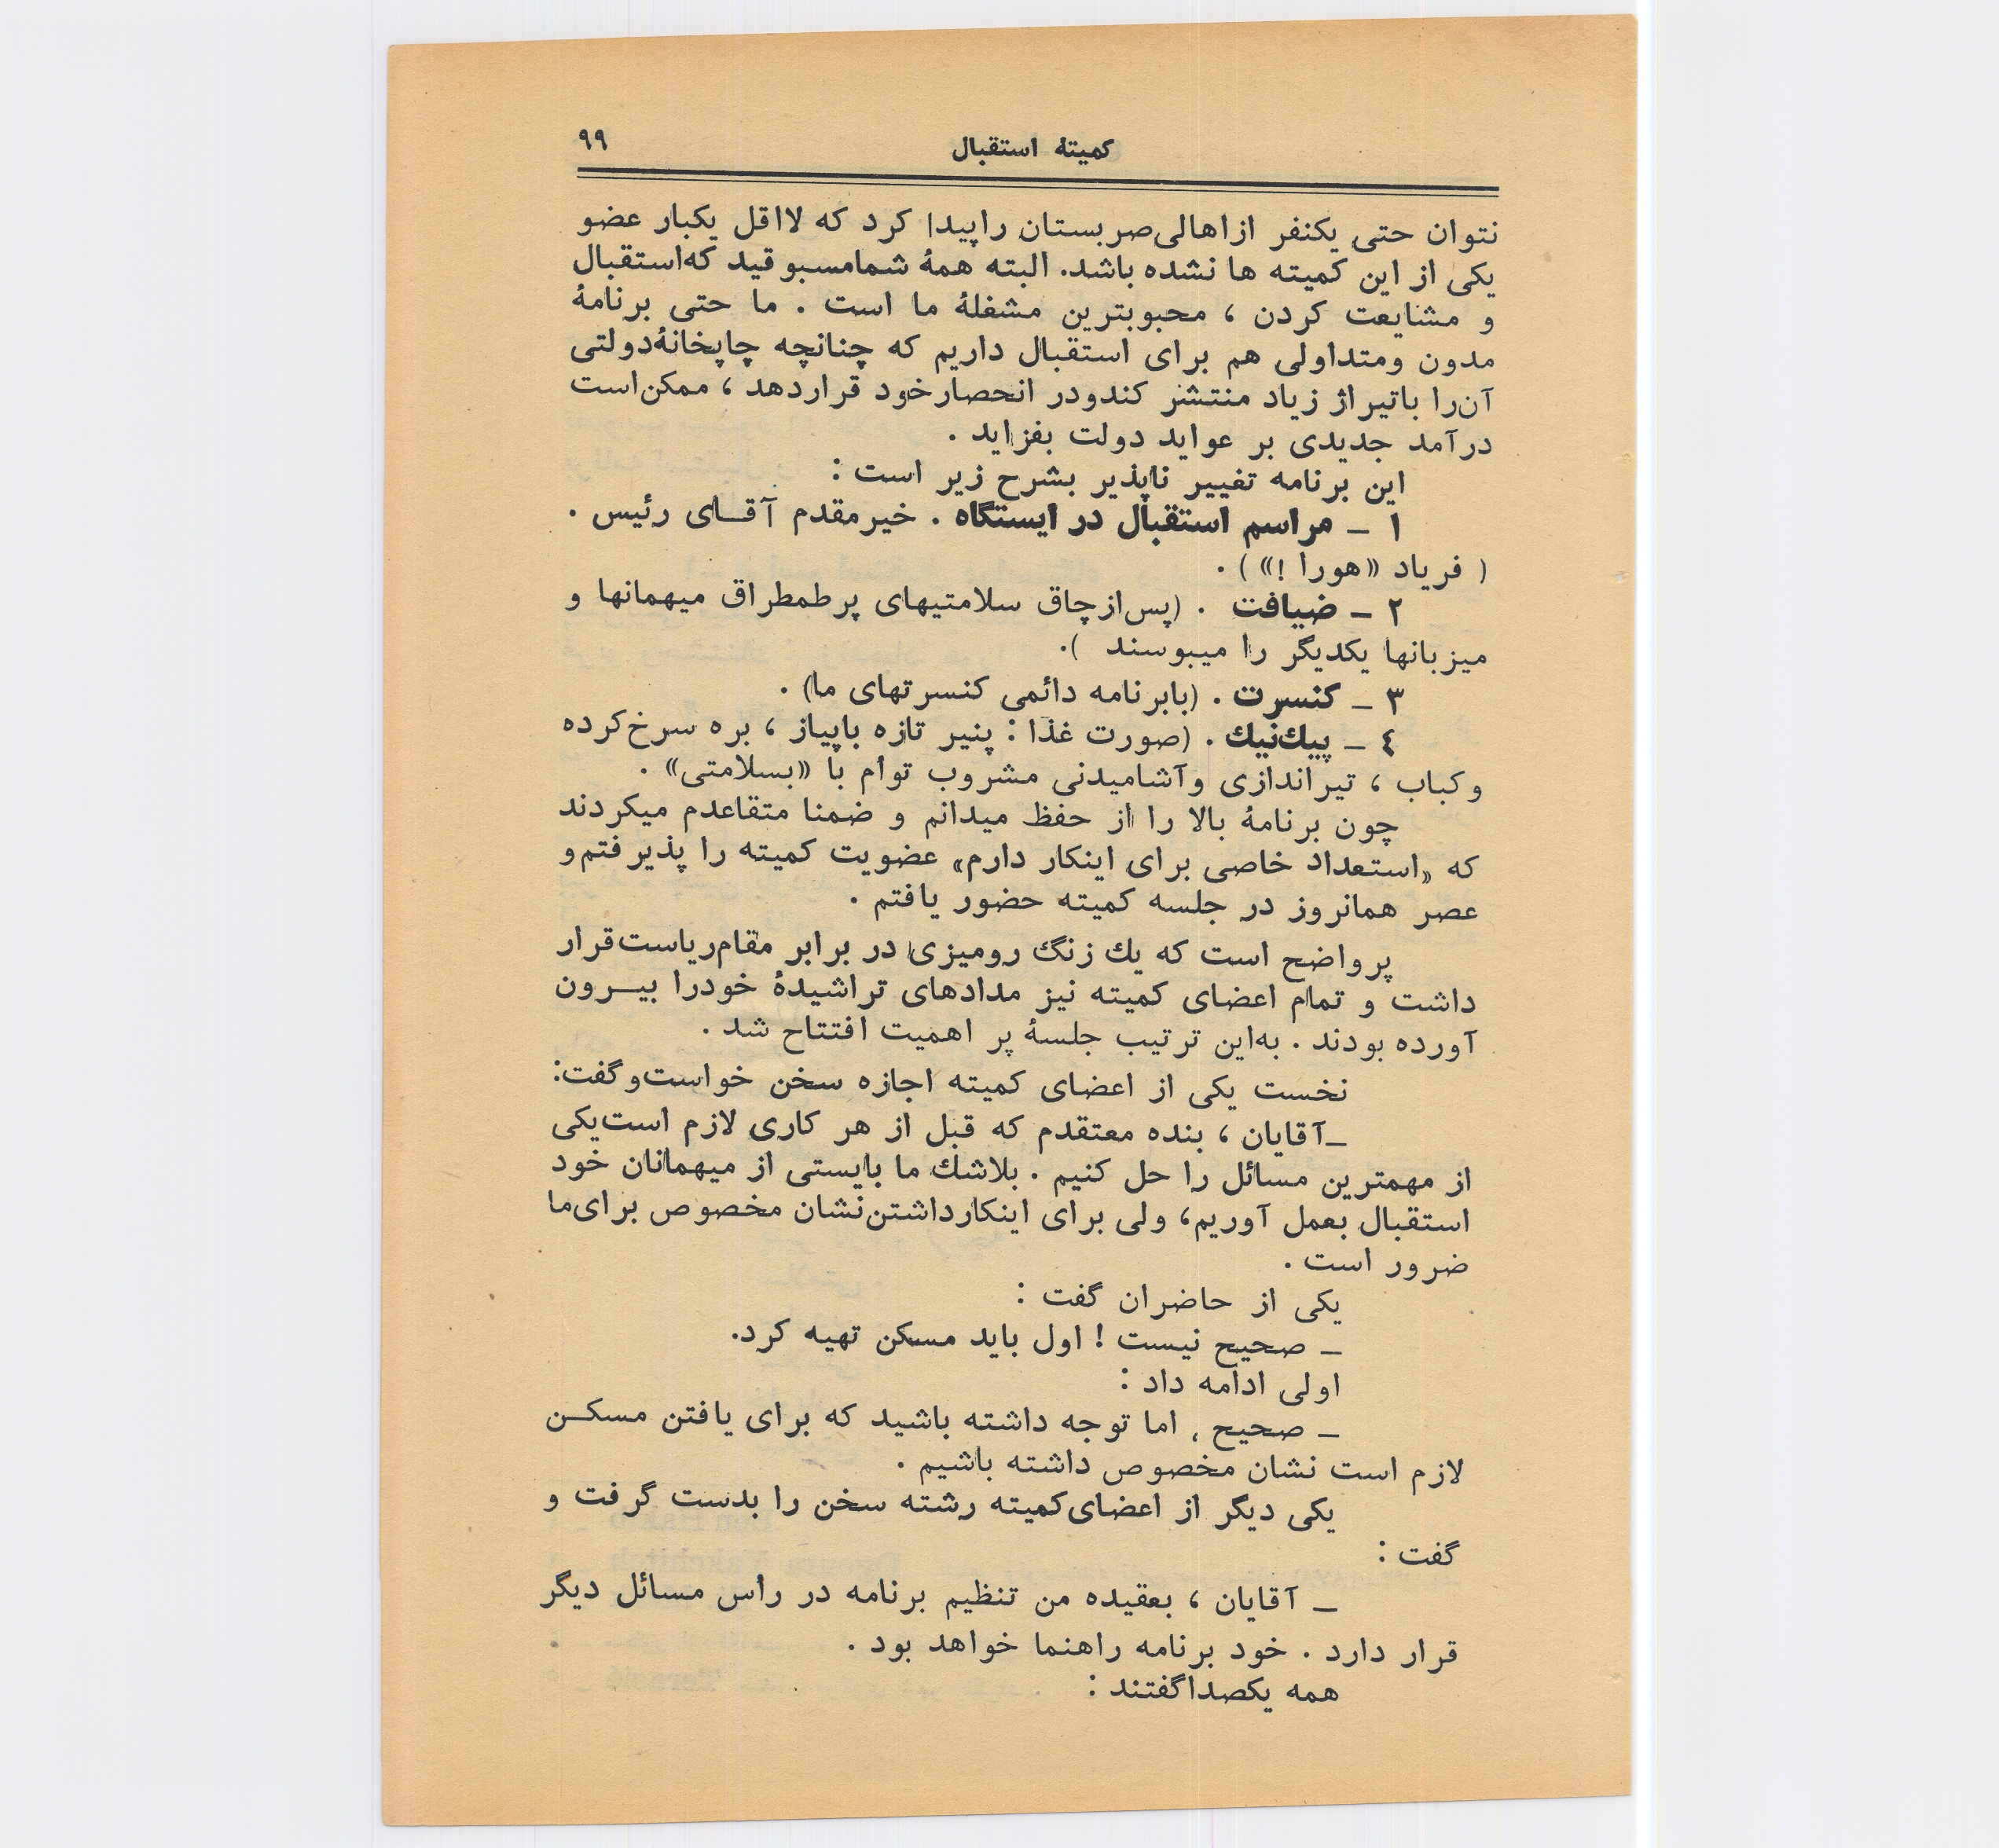 کمیتهٔ استقبال ۹۹
نتوان حتی یکنفر ازاهالی‌صربستان راپیدا کرد که لااقل یکبار عضو
یکی از این کمیته ها نشده باشد. البته همهٔ شمامسبوقید که‌استقبال
و مشایعت کردن ، محبوبترین مشغلهٔ ما است . ما حتی برنامهٔ
مدون ومتداولی هم برای استقبال داریم که چنانچه چاپخانهٔ‌دولتی
آن‌را باتیراژ زیاد منتشر کندودر انحصارخود قراردهد ، ممکن‌است
درآمد جدیدی بر عواید دولت بفزاید .
این برنامه تغییر ناپذیر بشرح زیر است :
۱ ـ مراسم استقبال در ایستگاه . خیرمقدم آقـای رئیس .
( فریاد «هورا !» ) .
۲ ـ ضیافت . (پس‌ازچاق سلامتیهای پرطمطراق میهمانها و
میزبانها یکدیگر را میبوسند ).
۳ ـ کنسرت . (بابرنامه دائمی کنسرتهای ما) .
٤ ـ پیك‌نیك . (صورت غذا : پنیر تازه باپیاز ، بره سرخ‌کرده
وکباب ، تیراندازی وآشامیدنی مشروب توأم با «بسلامتی» .
چون برنامهٔ بالا را از حفظ میدانم و ضمنا متقاعدم میکردند
که «استعداد خاصی برای اینکار دارم» عضویت کمیته را پذیرفتم‌و
عصر همانروز در جلسه کمیته حضور یافتم .
پرواضح است که یك زنگ رومیزی در برابر مقام‌ریاست‌قرار
داشت و تمام اعضای کمیته نیز مدادهای تراشیدهٔ خودرا بیـرون
آورده بودند . به‌این ترتیب جلسهٔ پر اهمیت افتتاح شد .
نخست یکی از اعضای کمیته اجازه سخن خواست‌وگفت:
ـآقایان ، بنده معتقدم که قبل از هر کاری لازم است‌یکی
از مهمترین مسائل را حل کنیم . بلاشك ما بایستی از میهمانان خود
استقبال بعمل آوریم، ولی برای اینکارداشتن‌نشان مخصوص برای‌ما
ضرور است .
یکی از حاضران گفت :
ـ صحیح نیست ! اول باید مسکن تهیه کرد.
اولی ادامه داد :
ـ صحیح ، اما توجه داشته باشید که برای یافتن مسکـن
لازم است نشان مخصوص داشته باشیم .
یکی دیگر از اعضای‌کمیته رشته سخن را بدست گرفت و
گفت :
ـ آقایان ، بعقیده من تنظیم برنامه در رأس مسائل دیگر
قرار دارد . خود برنامه راهنما خواهد بود .
همه یکصداگفتند :